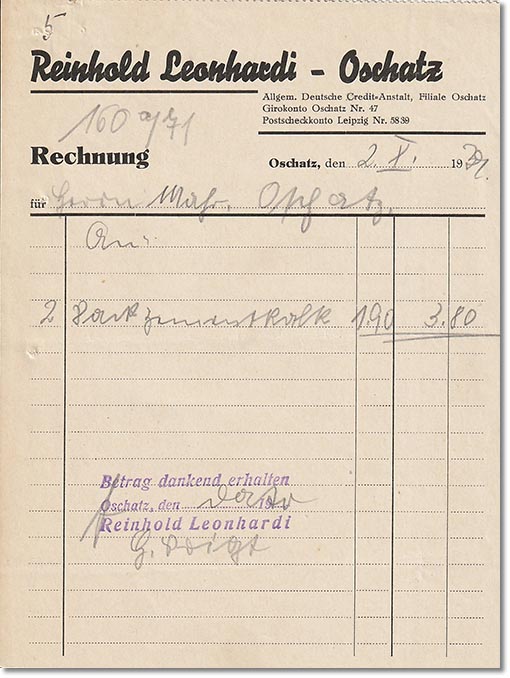 5
Reinhold Leonhardi - Oschatz
Allgem. Deutsche Credit-Anstalt, Filiale Oschatz
Girokonto Oschatz Nr. 47
Postscheckkonto Leipzig Nr. 5839
160 a/71
Rechnung
Oschatz, den 2. X. 1939.
für Herrn Mahr, Oschatz.
An:
2 Sack Zementkalk 1.90 3.80
Betrag dankend erhalten
Oschatz, den dato 19
Reinhold Leonhardi
G. Voigt